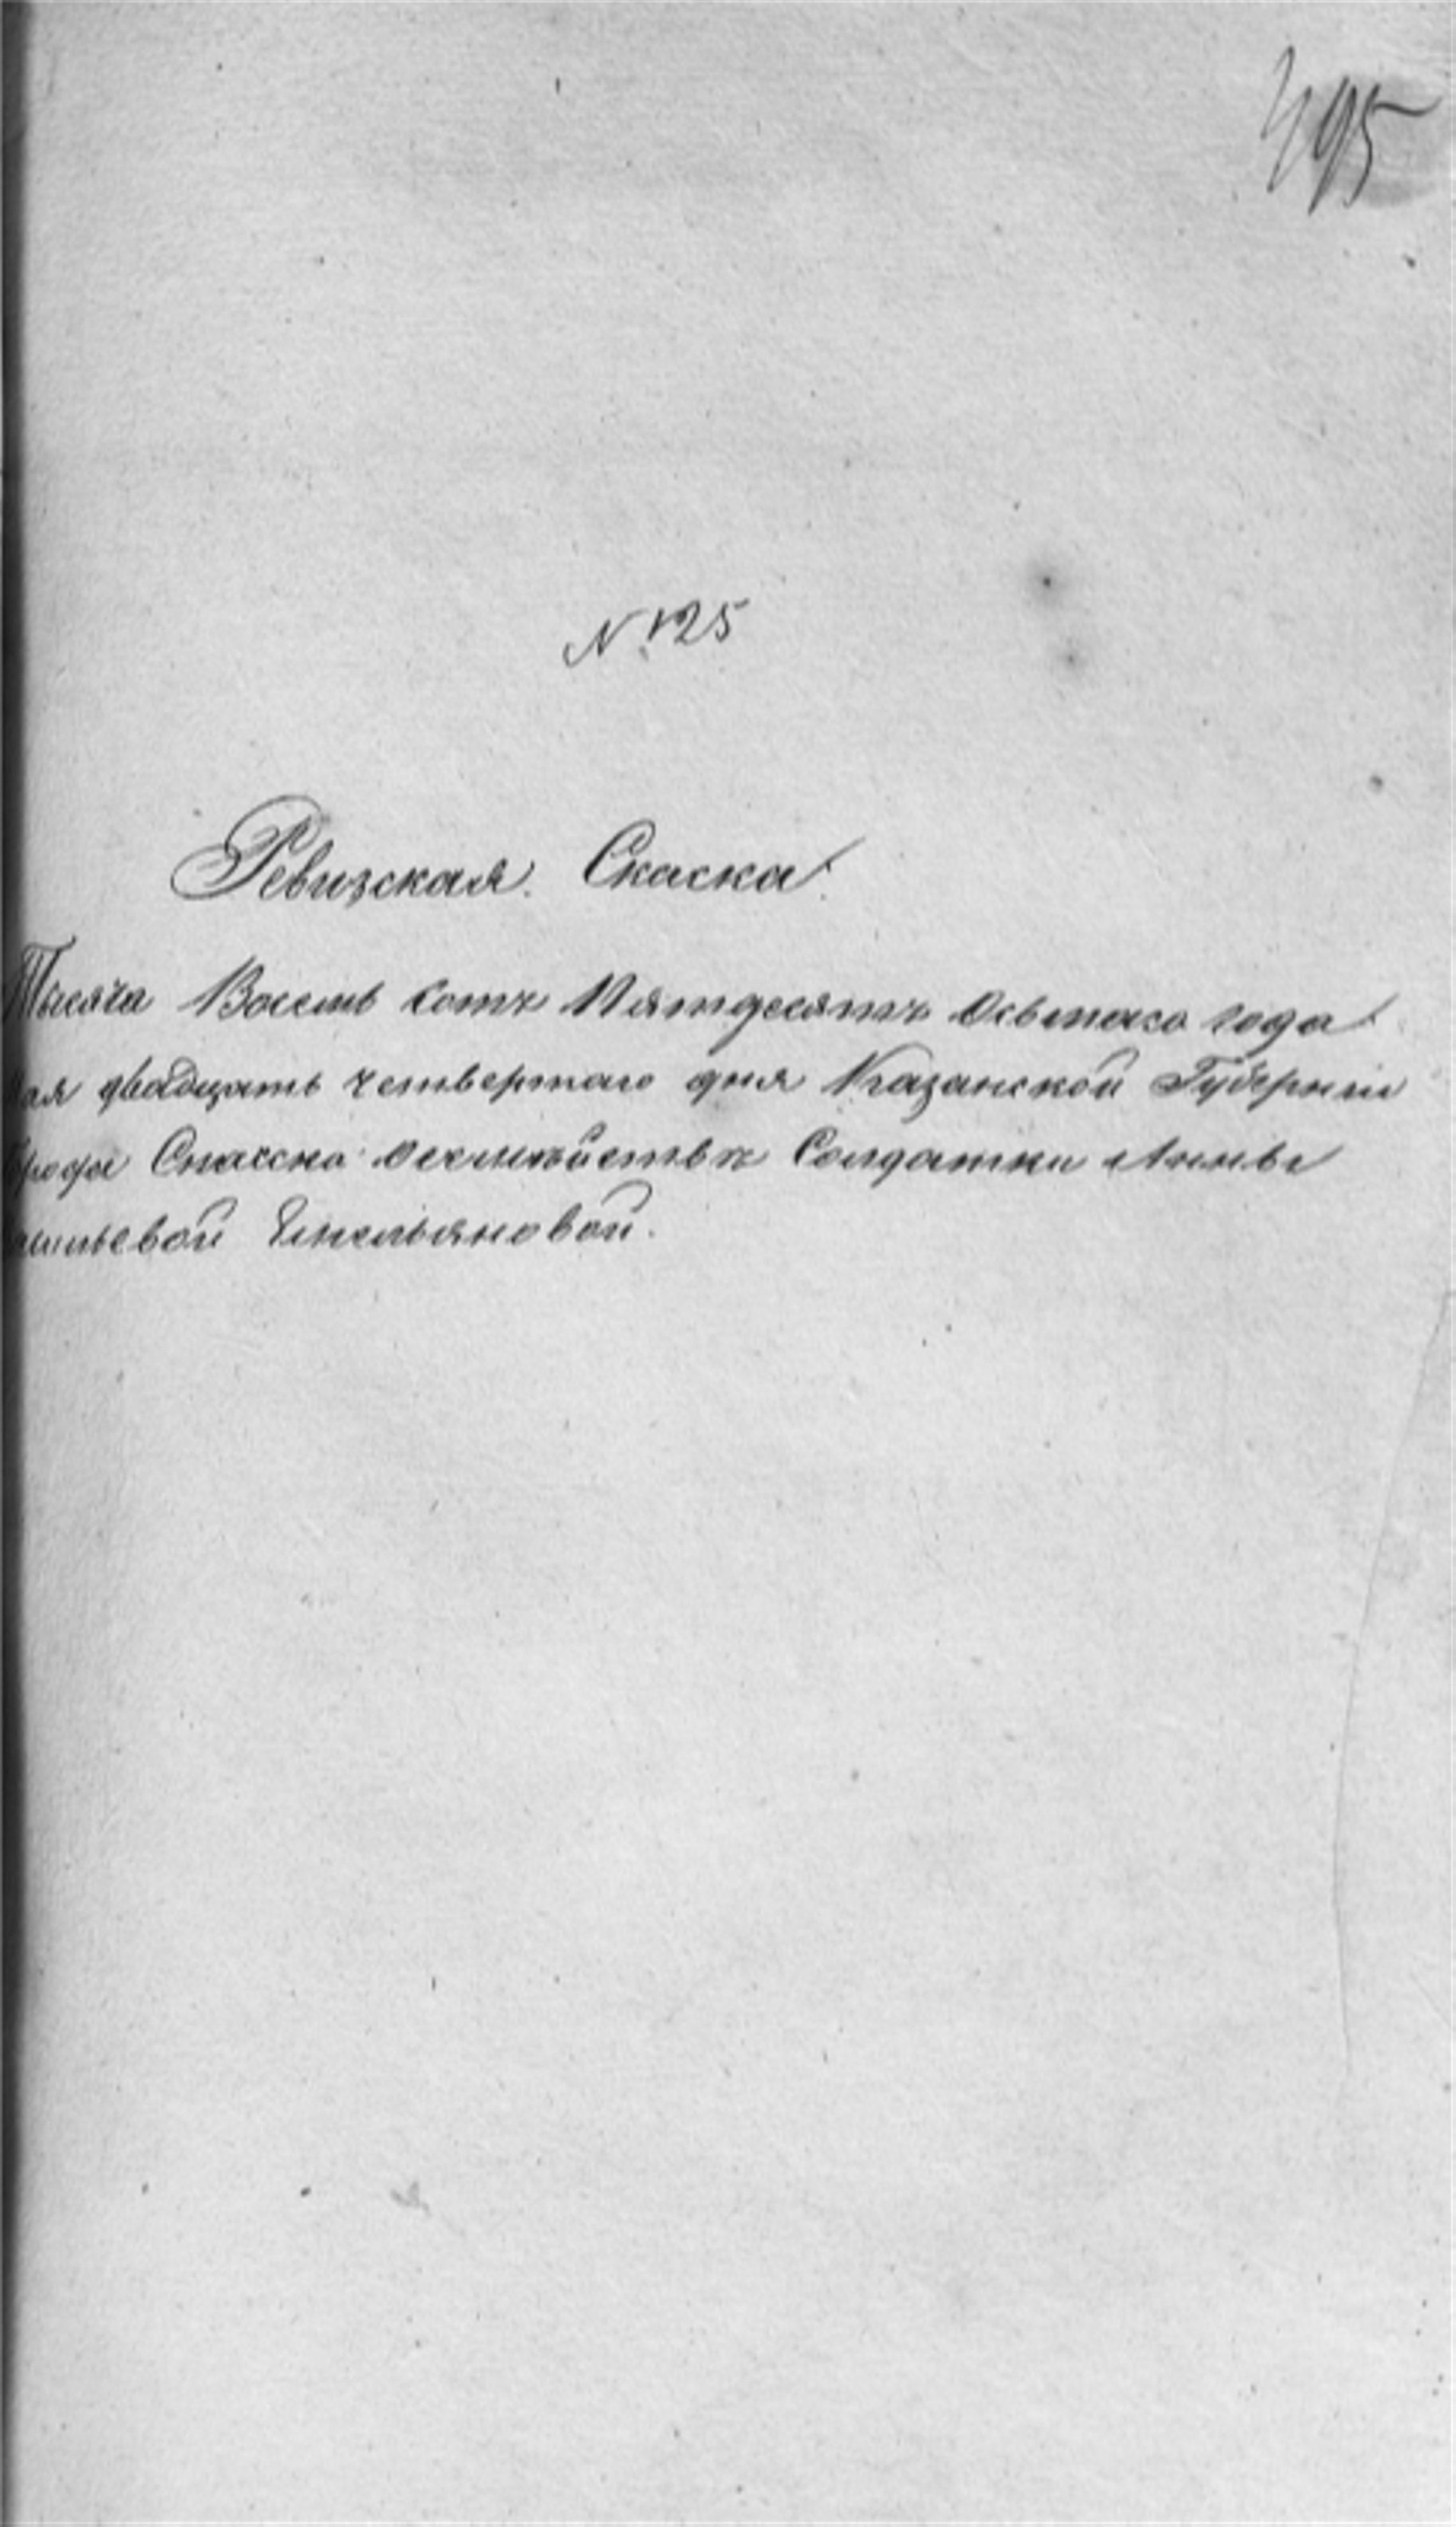 495
№ 125
Ревизская Скаска
Тысяча Восемь сотъ Пятдесятъ Осьмаго года
мая двадцать четвертаго дня Казанской Губерніи
города Спасска о семѣйствѣ Солдатки Анны
Емельяновой.